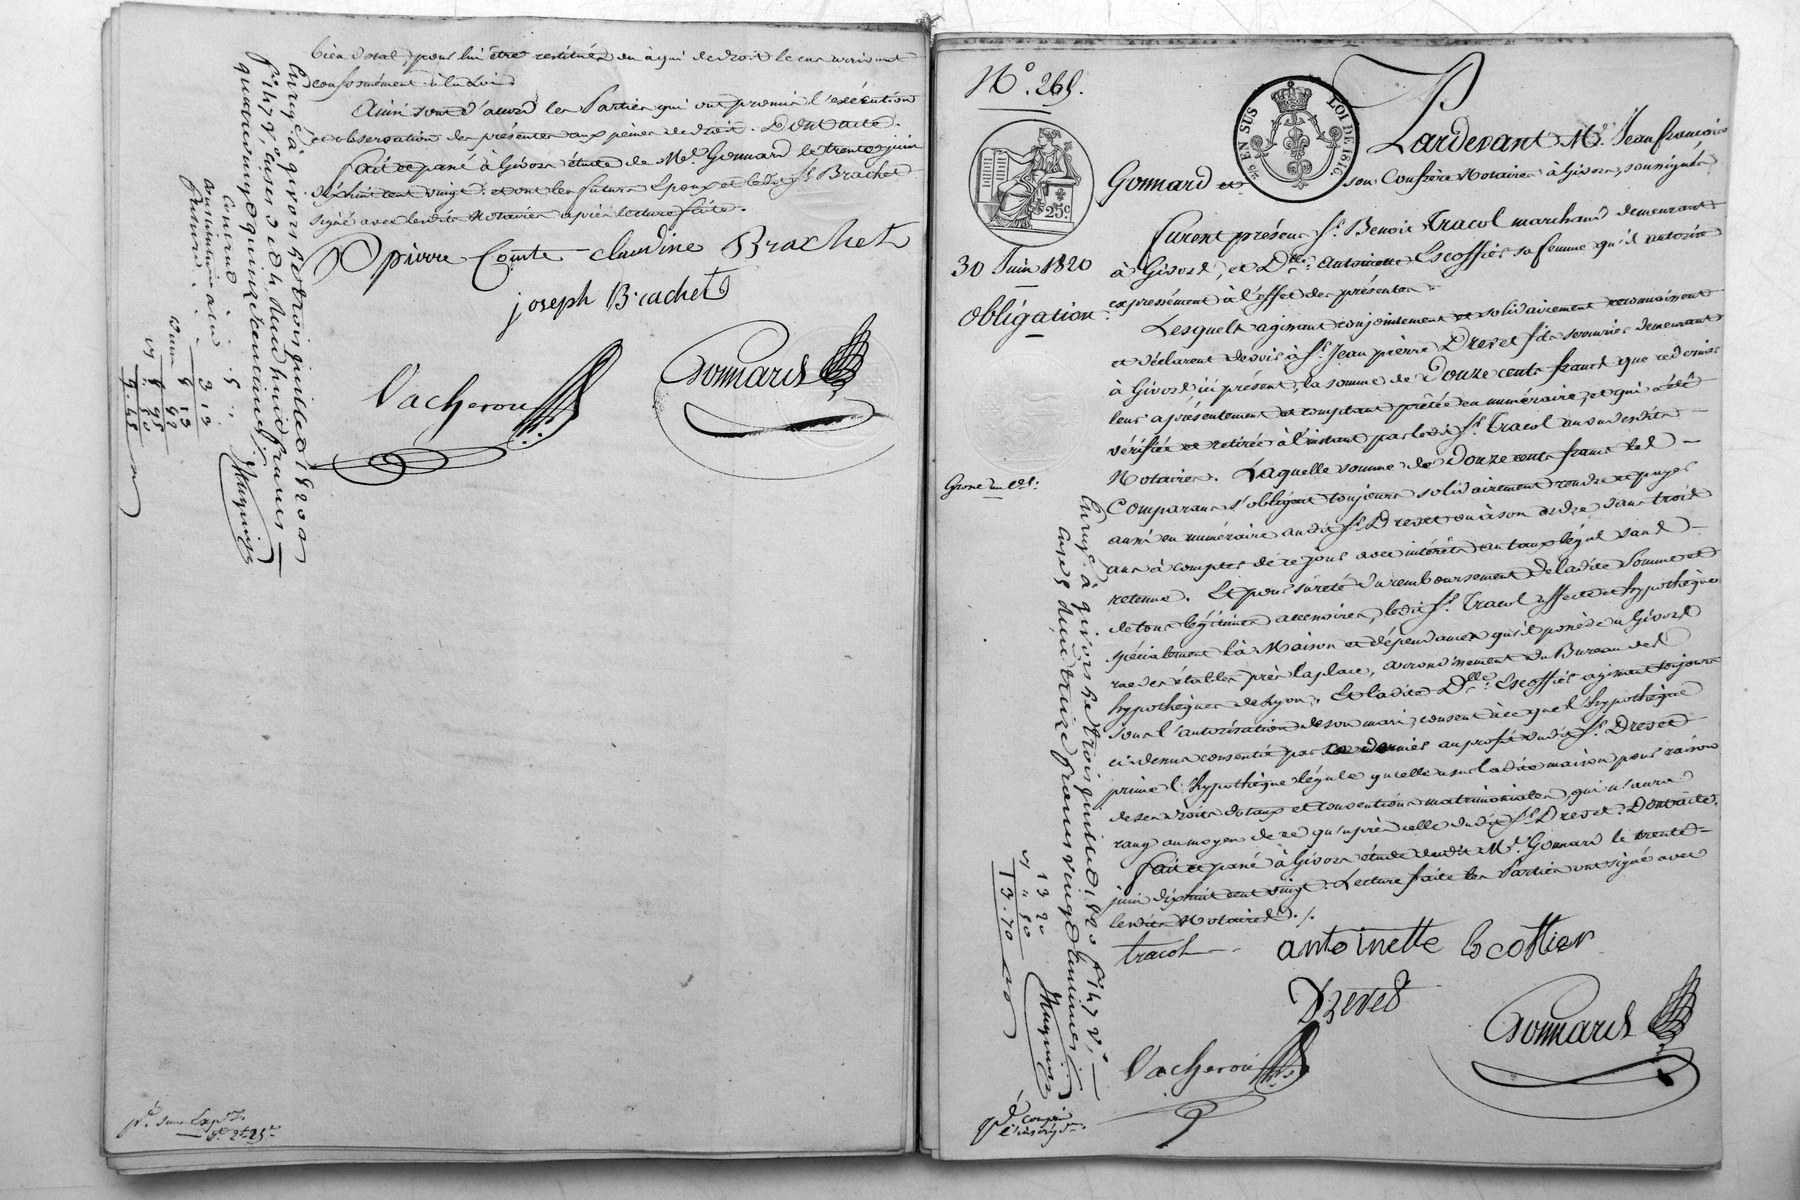 bien dotal, pour lui être restitués ou à qui de droit le cas arrivant
conformément à la Loi.
Ainsi sont d'accord les Parties qui ont promis l'exécution
et observation des présentes aux peines de droit. Dont acte.
fait et passé à Givors étude de Me. Gonnard le trente juin
dix huit cent vingt. et ont les futurs Epoux et ledit Sr. Brachet
signé avec lesdits Notaires après lecture faite.
pierre Comte claudine Brachet
joseph Brachet
Vacheron Gonnard
Enregé. à givors le trois juillet 1820
quarante quinze centimes
3 13
5
9.45
N°. 265.
EN SUS LOI DE 1816
25c
30 Juin 1820
Obligation
Grosse
Pardevant Me. Jean françois
Gonnard et son Confrère Notaires à Givors, soussignés
furent présens Sr. Benoit Tracol marchand demeurant
à Givors, et Dlle. Antoinette Escoffier sa femme qu'il autorise
expressément à l'effet des présentes.
Lesquels agissant conjointement et solidairement reconnoissent
et déclarent devoir à Sr. Jean pierre Drevet fils serrurier demeurant
à Givors ici présent, la somme de Douze cents francs que ce dernier
leur a présentement et comptant prêtée en numéraire, et qui a été
vérifiée et retirée à l'instant par ledit Sr. Tracol au vu desdits
Notaires. Laquelle somme de Douze cents francs les
Comparans s'obligent toujours solidairement rendre et payer
aussi en numéraire audit Sr. Drevet ou à son ordre dans trois
ans à compter de ce jour avec intérêts au taux légal sans
retenue. Et pour sûreté du remboursement de ladite Somme et
de tous légitimes accessoires, ledit Sr. Tracol affecte et hypothèque
spécialement la Maison et dépendances qu'il possède à Givors
rue des étables près la place, arrondissement du Bureau des
hypothèques de Lyon. Et ladite Dlle. Escoffier agissant toujours
sous l'autorisation de son mari, consent à ce que l'hypothèque
ci-dessus consentie par ce dernier au profit dudit Sr. Drevet
prime l'hypothèque légale qu'elle a sur ladite maison pour raison
de ses droits dotaux et conventions matrimoniales, qui n'aura
rang au moyen de ce qu'après celle dudit Sr. Drevet. Dont acte.
fait et passé à Givors étude dudit Me. Gonnard le trente
juin dix huit cent vingt. Lecture faite les Parties ont signé avec
lesdits Notaires ./.
tracol antoinette Escoffier
Drevet
Vacheron Gonnard
Enregé. à givors le trois juillet 1820 fo. 147 vo.
reçu treize francs vingt centimes
13 20
" 50
13.70